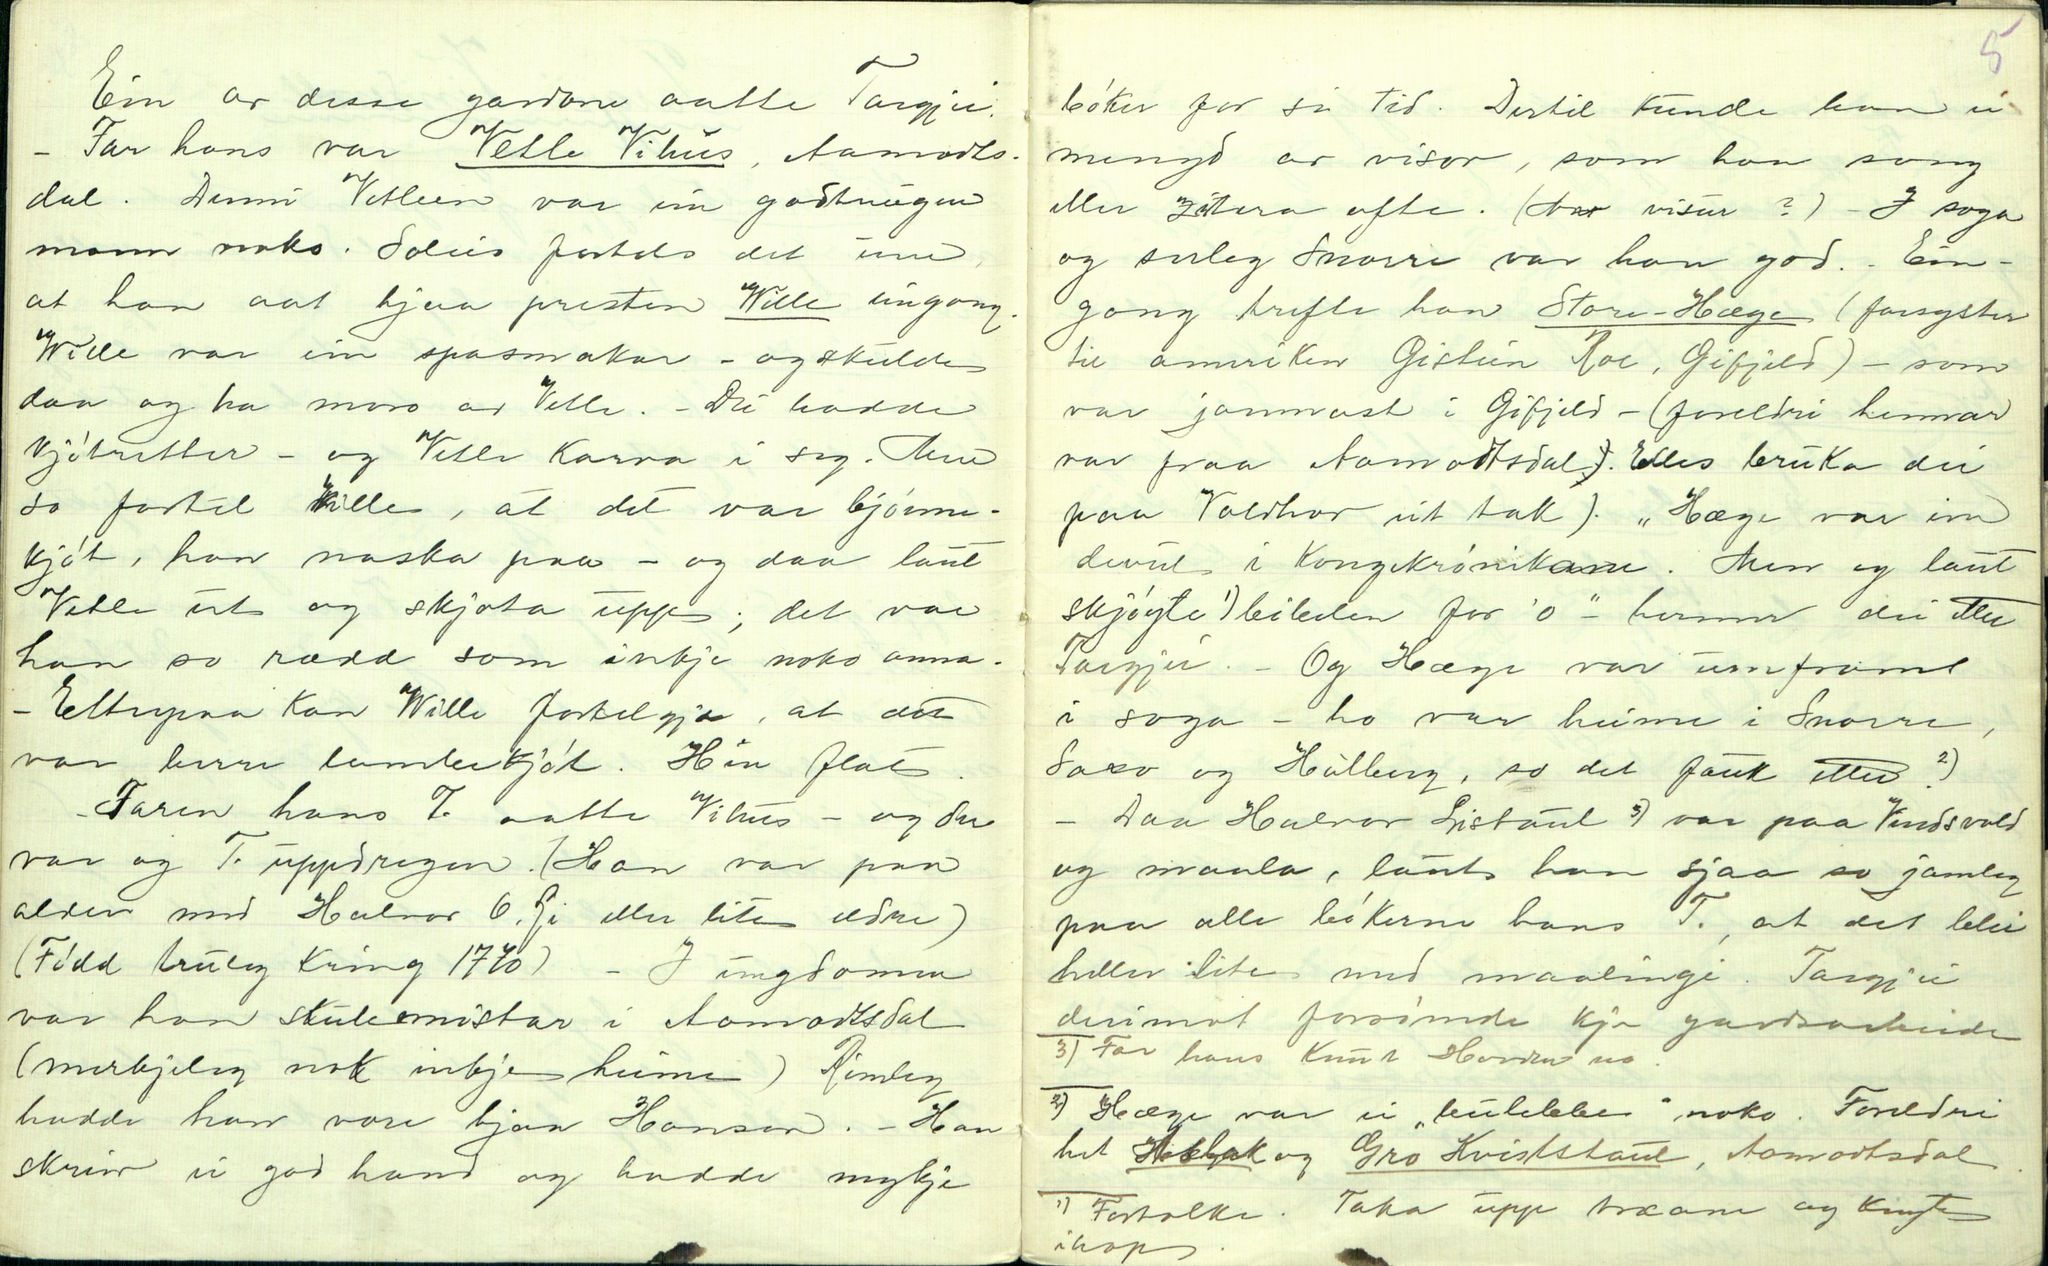 Ein av desse gardane aatte Targjei.
- Far hans var Vetle Vihus, Aamodts-
dal. Denni Vetleen var ein godtruigen
mann noko. Soleis fortels det um
at han aat hjaa presten Wille eingong.
Wille var ein spasmakar - og skulde
daa og ha moro av Vetle. - Dei hadde
kjötretter - og Vetle karva i seg. Men
so fortel Wille, at det var björne-
kjöt, han naska paa - og daa laut
Vetle ut og skjota upp; det var
han so rædd som inkje noko anna.
- Etterpaa kan Wille fortelgja, at det
var berre lambekjöt. Hin flat.
- Faren hans T. aatte Vihus - og der
var og T. uppdregen. (Han var paa
alder med Halvor O. Gj. eller liten eldre)
(Född truleg kring 1770) - I ungdomen
var han skulemistar i Aamodtsdal
(merkjeleg nok inkje heime) Rimleg
hadde han vore hjaa Hanson. - Han
skreiv ei god hand og hadde mykje
5
böker for si tid. Dertil kunde han ei
mengd av visor, som han song
eller zitera ofte. ( visur ?) - I soga
og serleg Snorre var han god. - Ein-
gong trefte han Store-Hæge (farsyster
til ameriken Gistein Roe, Gifjeld) - som
var jamnast i Gifjeld - (foreldri hennar
var fraa Aamodtsdal). Elles bruka dei
paa Valdhor eit tak). "Hæge var ein
devul i Kongekrönikann. Men eg laut
skjöyte 1) bibelen for 'o" - hermer dei etter
Targjei. - Og Hæge var umframt
i soga - ho var heime i Snorre,
Saxo og Hålberg, so det fauk etter 2)
- Daa Halvor Listaul 3) var paa Vindsvold
og maala, laut han sjaa so jamleg
paa alle bökerne hans T., at det blei
heller lite med maalingi. Targjei
derimot forsömde kje gardsarbeide
3) Far hans Knut Hovden no.
2) Hæge var ei "kulekke" noko. Foreldri
het og Gro Kvistaul, Aamodtsdal.
1) Fortolke. Taka upp træane og knyte
ihop.